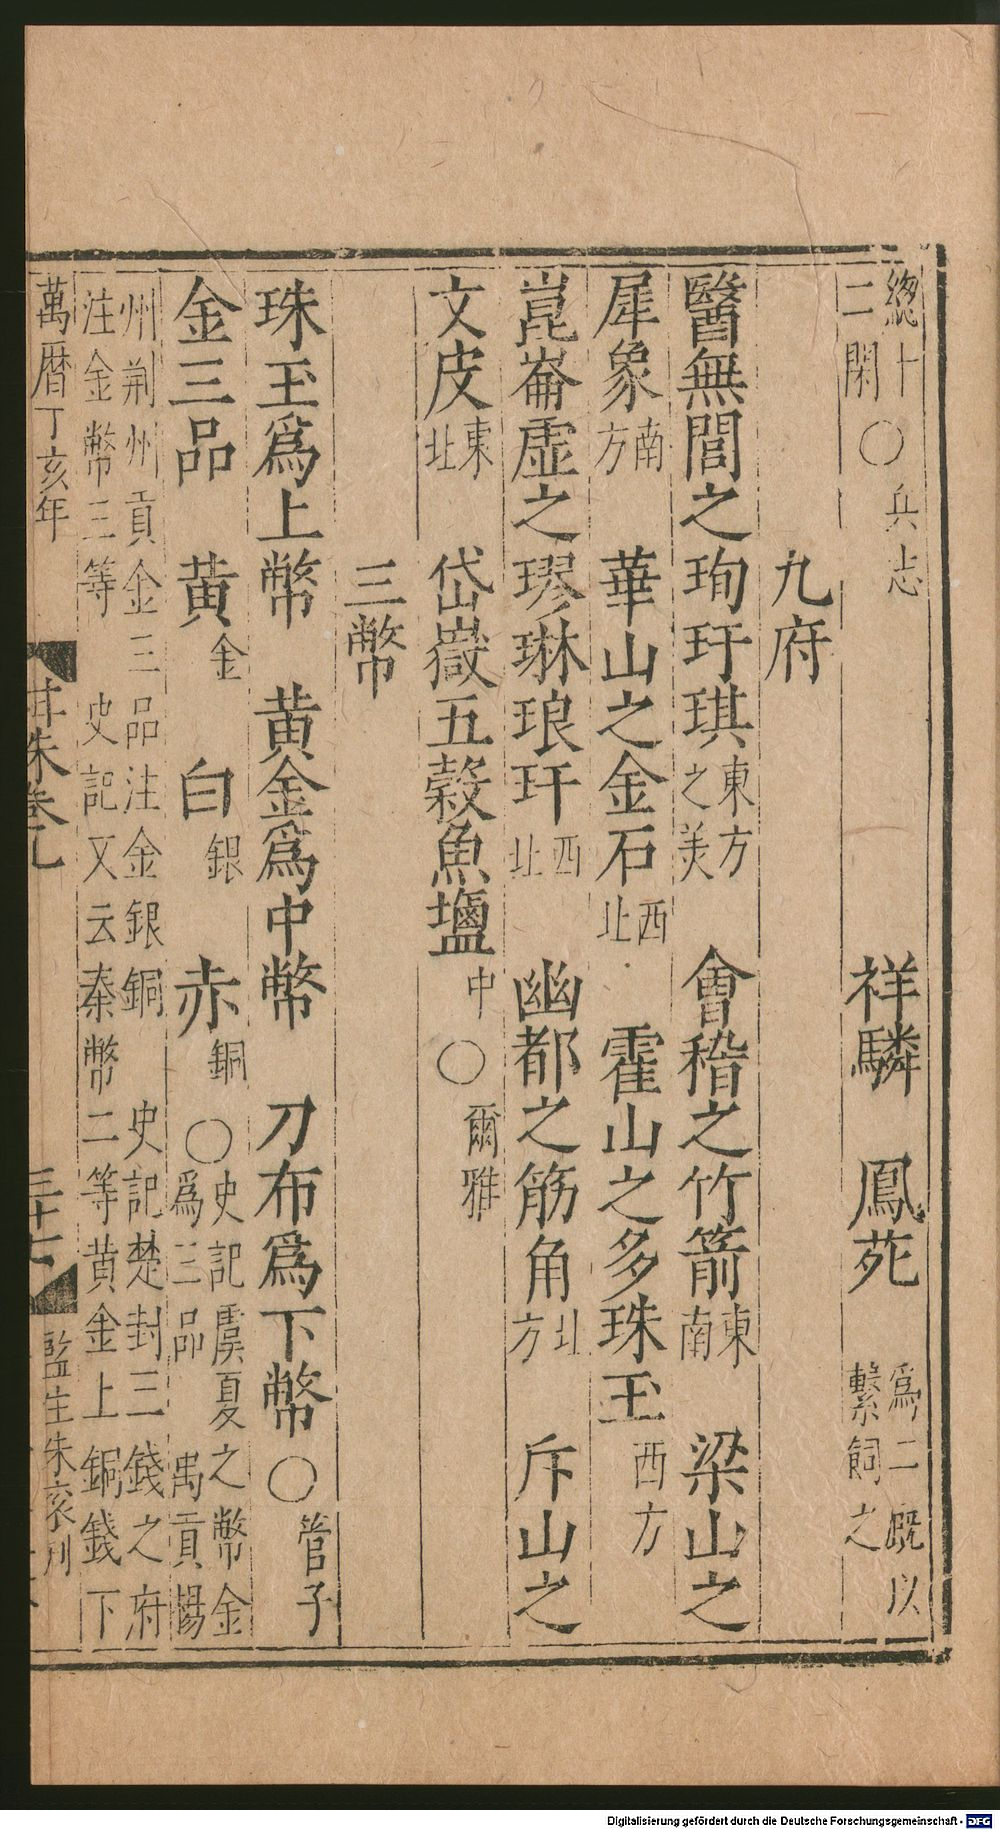 總十二閑〇兵志 祥驎 鳳苑 爲二廐以繫飼之
九府
醫無閭之珣玗琪東方之美 會稽之竹箭東南 梁山之
犀象南方 華山之金石西北 霍山之多珠玉西方
崑崙虛之璆琳琅玕西北 幽都之筋角北方 斥山之
文皮東北 岱嶽五穀魚鹽中〇爾雅
三幣
珠玉爲上幣 黃金爲中幣 刀布爲下幣〇管子
金三品 黃金 白銀 赤銅〇史記虞夏之幣金爲三品 禹貢揚
州荆州貢金三品注金銀銅 史記楚封三錢之府
注金幣三等 史記又云秦幣二等黃金上銅錢下
萬曆丁亥年 珠卷九 三十七 監生朱衮刊
Digitalisierung gefördert durch die Deutsche Forschungsgemeinschaft - DFG